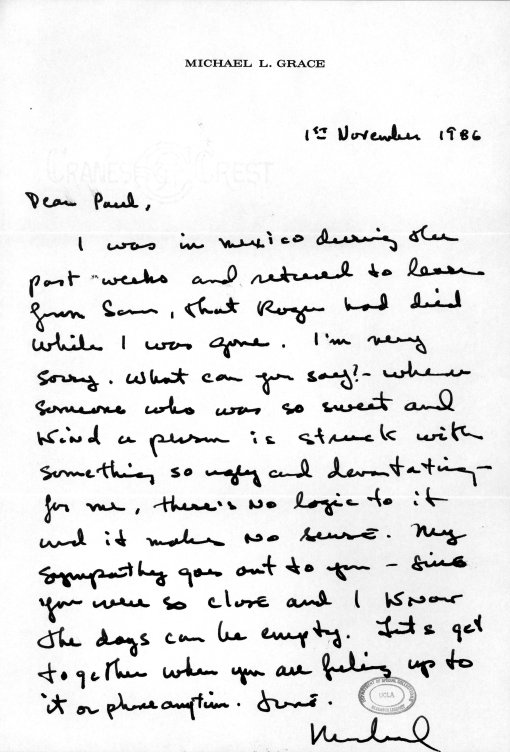 MICHAEL L. GRACE
1ST November 1986
CRANE'S CREST
Dear Paul,
I was in mexico during the
past weeks and returned to learn
from Sam, that Roger had died
while I was gone. I'm very
sorry. What can you say? - when
someone who was so sweet and
kind a person is struck with
something so ugly and devastating -
for me, there's no logic to it
and it makes no sense. My
sympathy goes out to you - since
you were so close and I know
the days can be empty. Let's get
together when you are feeling up to
it or phone anytime.
DEPARTMENT OF SPECIAL COLLECTIONS
UCLA
RESEARCH LIBRARY
Michael